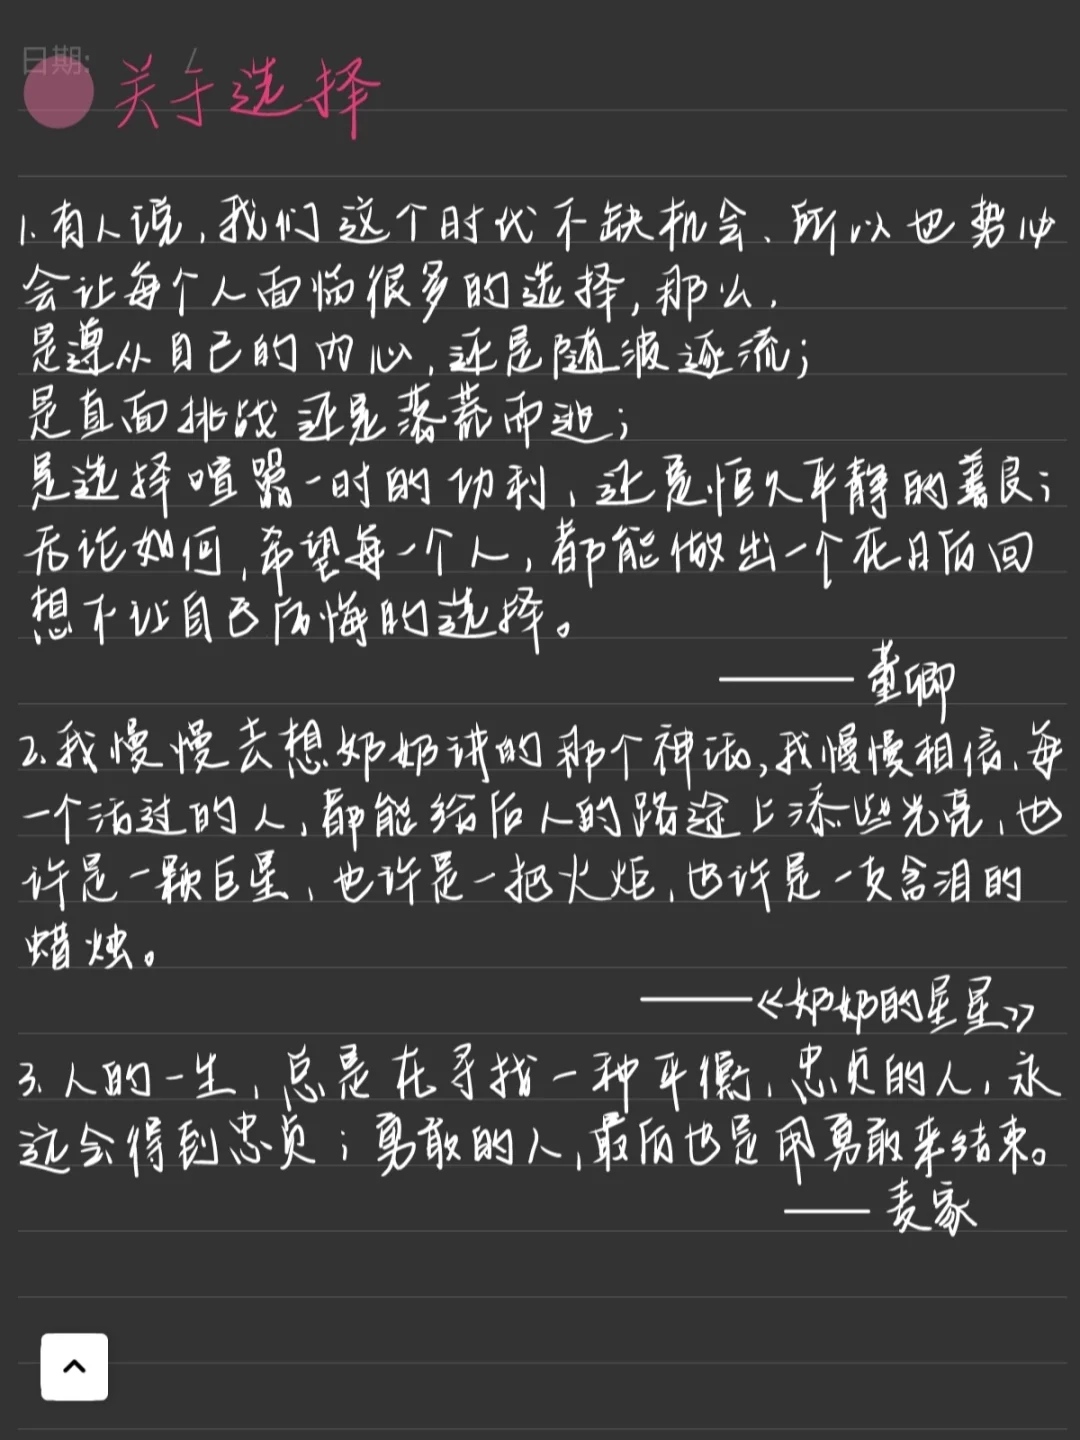 日期: /
关于选择
1.有人说,我们这个时代不缺机会、所以也势必
会让每个人面临很多的选择,那么,
是遵从自己的内心,还是随波逐流;
是直面挑战还是落荒而逃;
是选择喧嚣一时的功利,还是恒久平静的善良;
无论如何,希望每一个人,都能做出一个在日后回
想不让自己后悔的选择。
——董卿
2.我慢慢去想奶奶讲的那个神话,我慢慢相信、每
一个活过的人,都能给后人的路途上添些光亮,也
许是一颗巨星,也许是一把火炬,也许是一支含泪的
蜡烛。
——《奶奶的星星》
3.人的一生,总是在寻找一种平衡,忠贞的人,永
远会得到忠贞;勇敢的人,最后也是用勇敢来结束。
——麦家